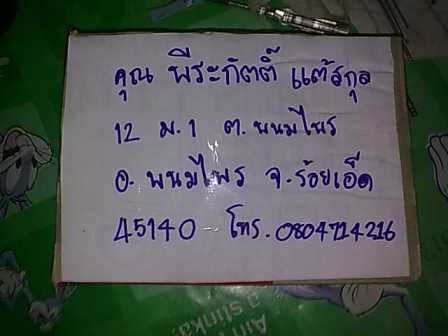 คุณ พีระกิตติ์ แต้สกุล
12 ม.1 ต.พนมไพร
อ.พนมไพร จ.ร้อยเอ็ด
45140 โทร.0804714216